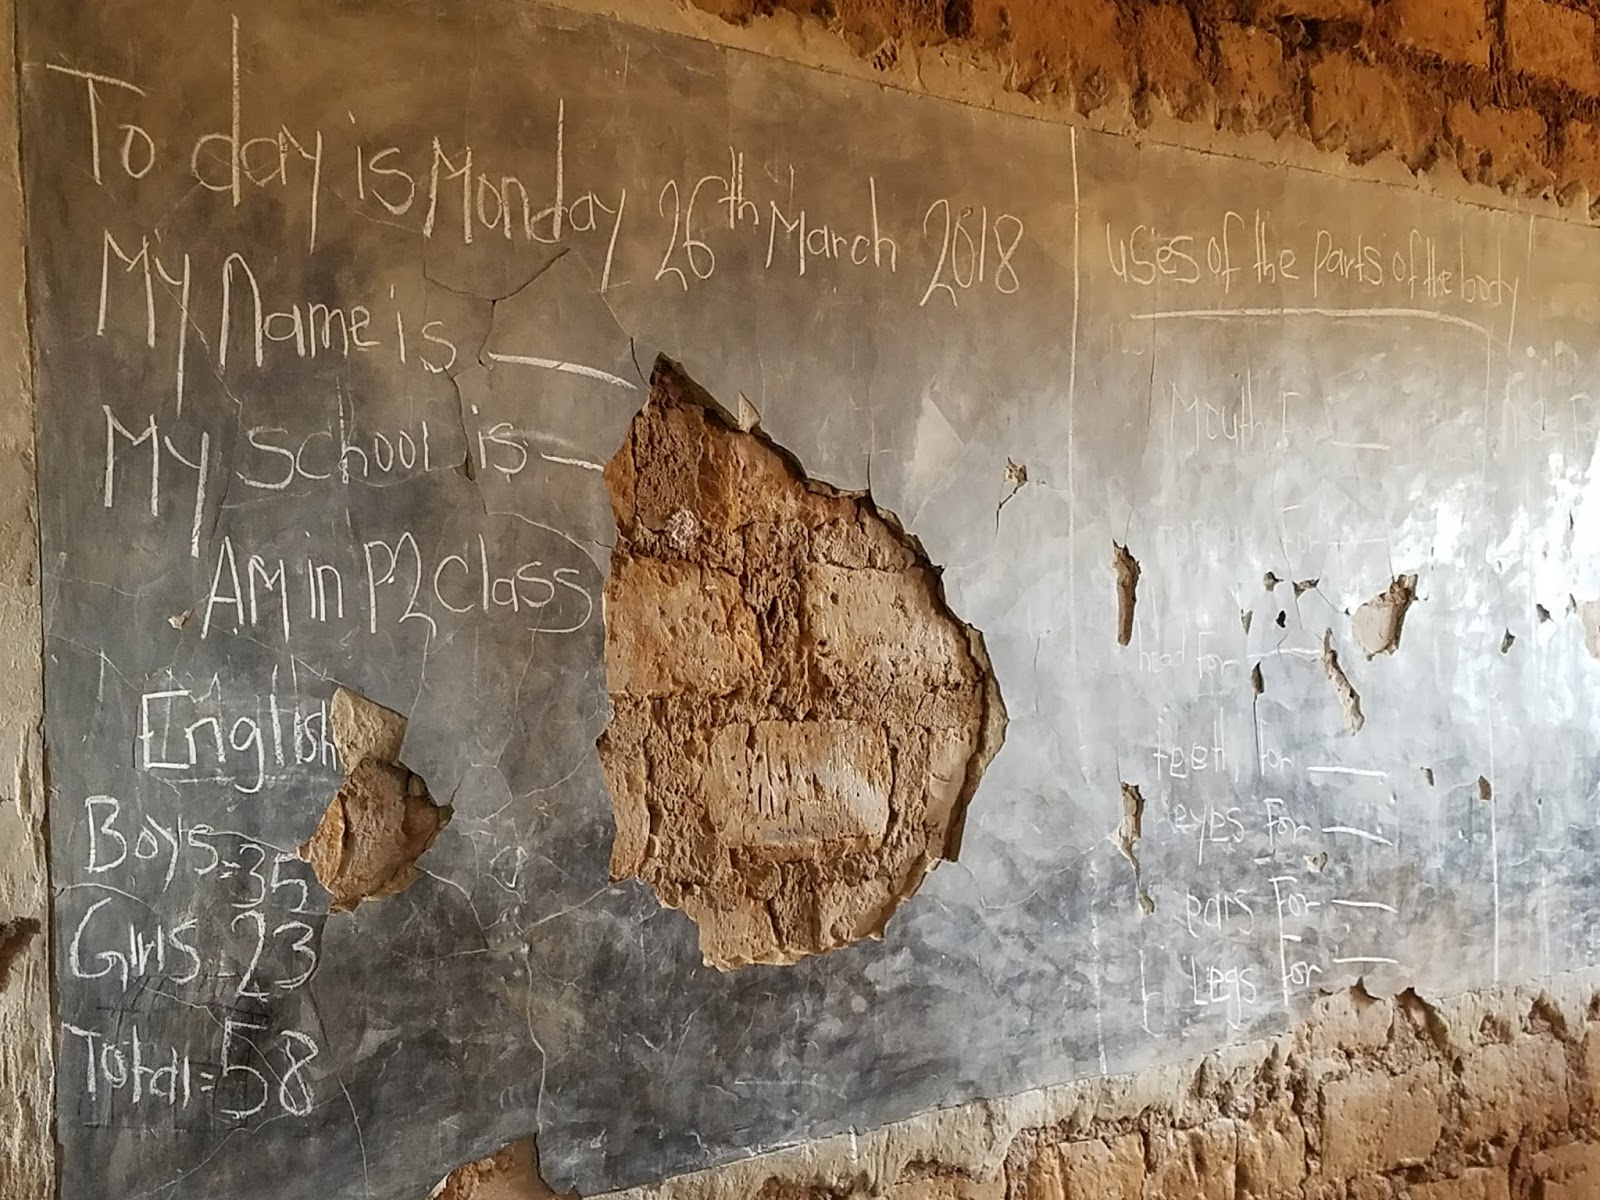 To day is Monday 26th March 2018
My Name is
My school is
AM in P.2 class
English
Boys = 35
Girls = 23
Total = 58
Uses of the parts of the body
Mouth For
tongue For
head For
teeth, for
eyes For
ears For
Legs For